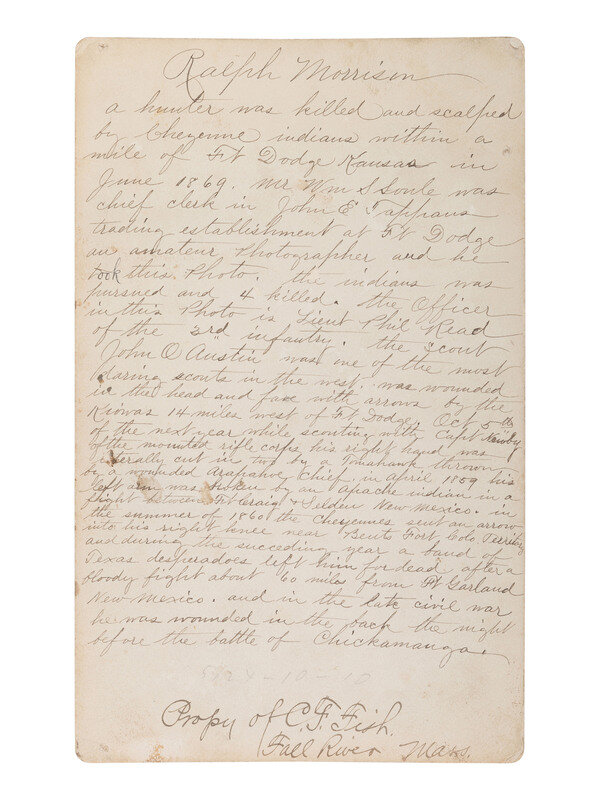 Ralph Morrison
a hunter was killed and scalped
by Cheyenne indians within a
mile of Ft Dodge Kansas in
June 1869. Mr Wm S Soule was
chief clerk in John E Tappans
trading establishment at Ft Dodge
an amateur Photographer and he
took this Photo. the indians was
pursued and 4 killed. the Officer
in this Photo is Lieut Phil Read
of the 3rd infantry. the scout
John O Austin was one of the most
daring scouts in the west. was wounded
in the head and face with arrows by the
Kiowas 14 miles west of Ft Dodge Oct 5th
of the next year while scouting with Capt
of the mounted rifle corps his right hand was
literally cut in two by a Tomahank thrown
by a wounded Arapahoe Chief, in april 1859 his
left arm was broken by an apache indian in a
fight between Ft Craig & Selden New Mexico. in
the summer of 1860 the Cheyennes sent an arrow
into his right knee near Bents Fort Colo Territory
and during the succeding year a band of
Texas desperadoes left him for dead after a
bloody fight about 60 miles from Ft Garland
New Mexico. and in the late civil war
he was wounded in the back the night
before the battle of Chickamauga.
Propy of C. F. Fish.
Fall River Mass.